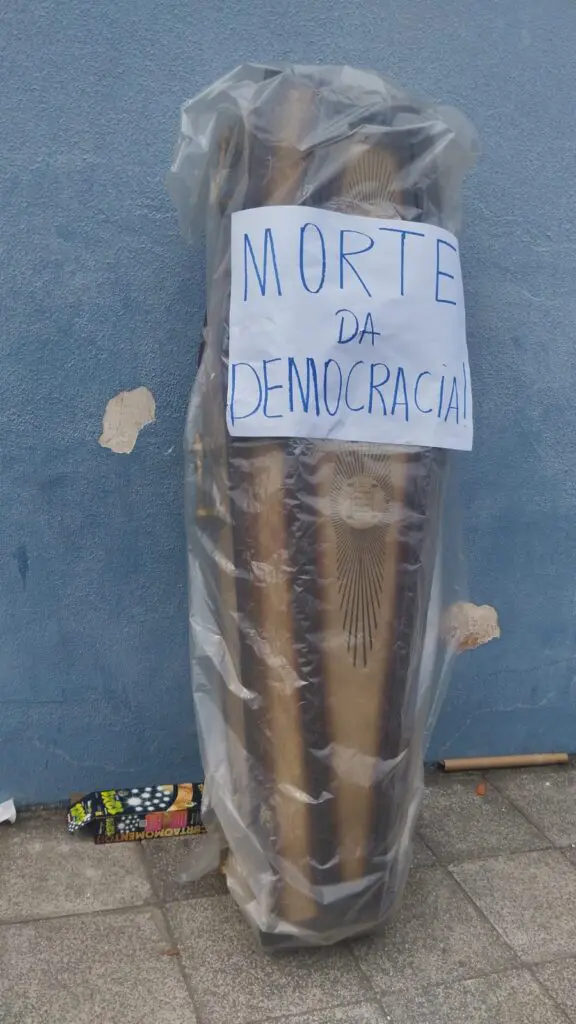 MORTE
DA
DEMOCRACIA!